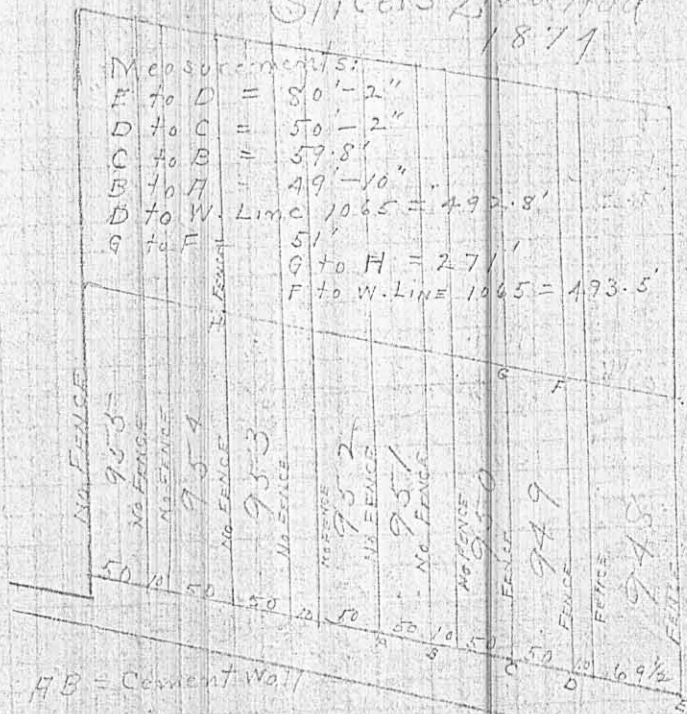 1871
Measurements:
E to D = 80'-2"
D to C = 50'-2"
C to B = 59.8'
B to A = 49'-10"
D to W. Line 1065 = 492.8'
G to F = 51'
G to H = 271'
F to W. LINE 1065 = 493.5'
H FENCE
G F
NO FENCE
955
NO FENCE
NO FENCE
954
NO FENCE
953
NO FENCE
NO FENCE
952
NO FENCE
951
NO FENCE
NO FENCE
950
FENCE
949
FENCE
FENCE
948
FENCE
50 10 50 50 10 50 A 50 10 B 50 C 50 D 10 69 1/2 E
AB = Cement Wall